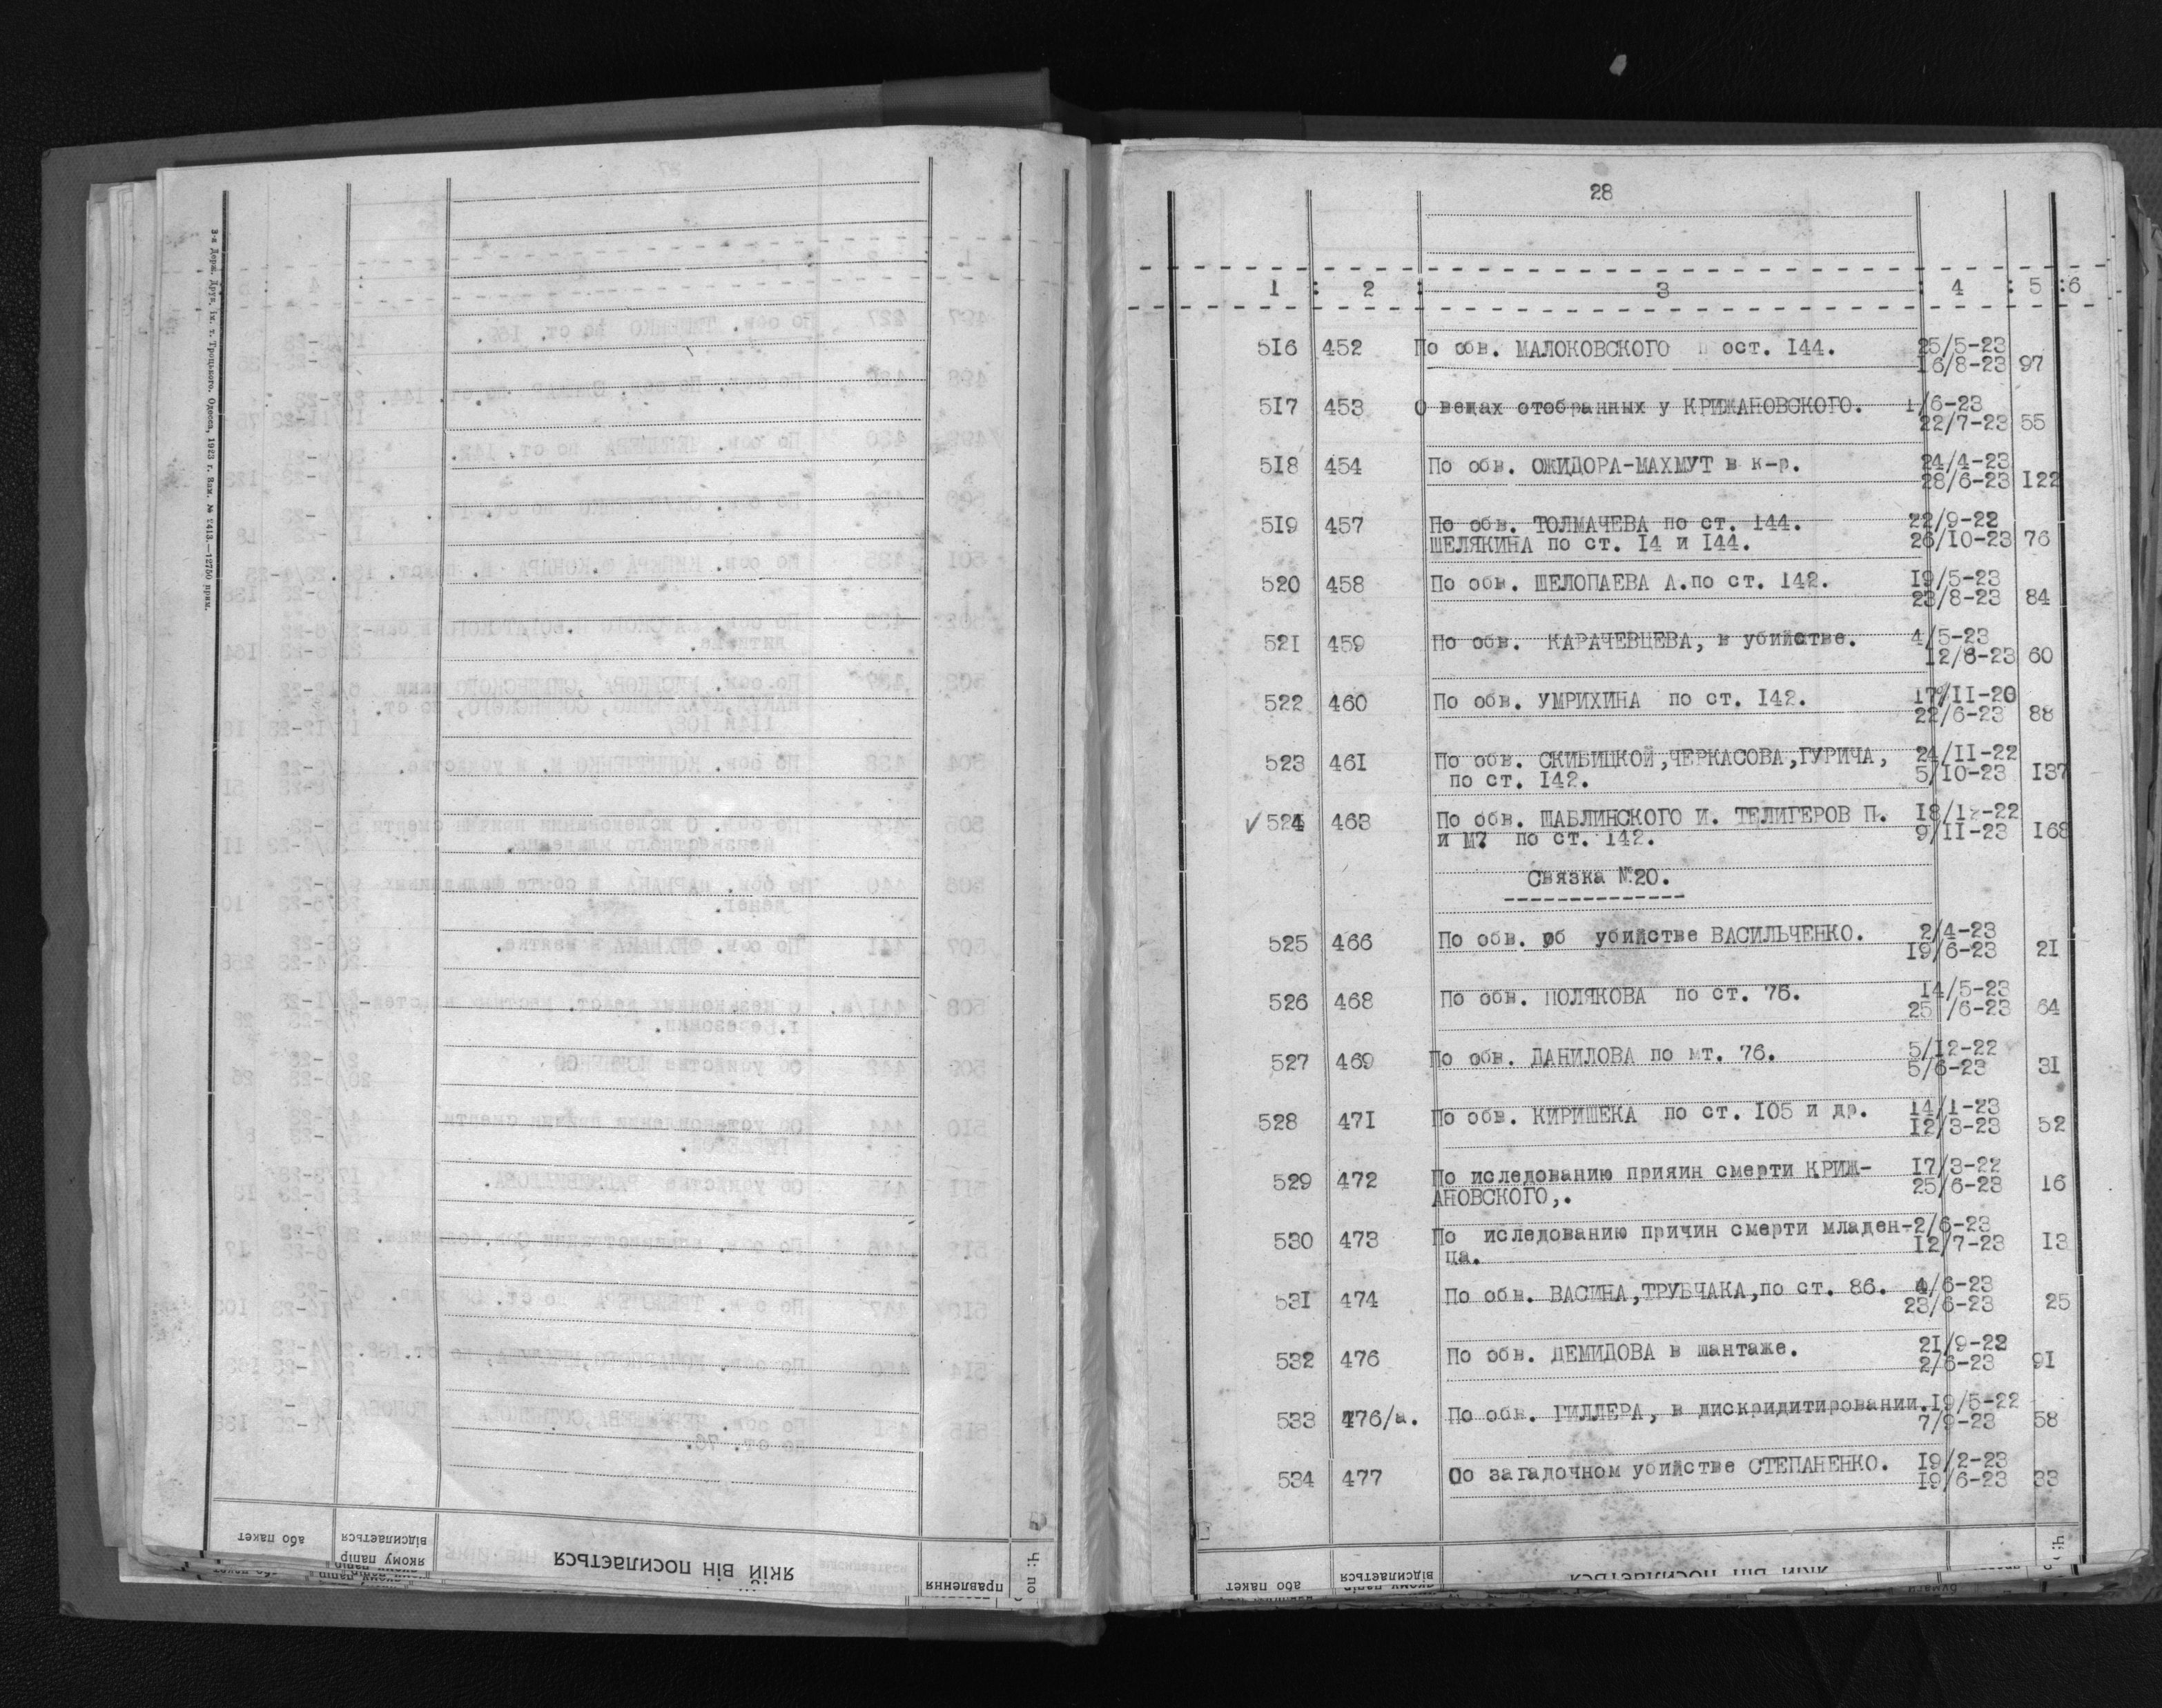 3-я Держ. Друк. ім. т. Троцького. Одеса, 1923 г. Зам. № 2413.—12750 прим.
або пакет
відсилається
якому папір
якій він посилається
правлення
28
1 : 2 : 3 : 4 : 5 :6
516 452 По обв. МАЛОКОВСКОГО п ост. 144. 25/5-23
16/8-23 97
517 453 О вещах отобранных у КРИЖАНОВСКОГО. 1/6-23
22/7-23 55
518 454 По обв. ОЖИДОРА-МАХМУТ в к-р. 24/4-23
28/6-23 122
519 457 По обв. ТОЛМАЧЕВА по ст. 144. 22/9-22
ШЕЛЯКИНА по ст. 14 и 144. 26/10-23 76
520 458 По обв. ШЕЛОПАЕВА А.по ст. 142. 19/5-23
23/8-23 84
521 459 По обв. КАРАЧЕВЦЕВА, в убийстве. 4/5-23
12/8-23 60
522 460 По обв. УМРИХИНА по ст. 142. 17/11-20
22/6-23 88
523 461 По обв. СКИБИЦКОЙ,ЧЕРКАСОВА,ГУРИЧА, 24/11-22
по ст. 142. 5/10-23 137
✓ 524 463 По обв. ШАБЛИНСКОГО И. ТЕЛИГЕРОВ П. 18/12-22
и М? по ст. 142. 9/11-23 168
Связка №20.
525 466 По обв. об убийстве ВАСИЛЬЧЕНКО. 2/4-23
19/6-23 21
526 468 По обв. ПОЛЯКОВА по ст. 76. 14/5-23
25 /6-23 64
527 469 По обв. ДАНИЛОВА по мт. 76. 5/12-22
5/6-23 31
528 471 По обв. КИРИШЕКА по ст. 105 и др. 14/1-23
12/3-23 52
529 472 По иследованию прияин смерти КРИЖ- 17/3-22
АНОВСКОГО,. 25/6-23 16
530 473 По иследованию причин смерти младен-2/6-23
ца. 12/7-23 13
531 474 По обв. ВАСИНА,ТРУБЧАКА,по ст. 86. 4/6-23
23/6-23 25
532 476 По обв. ДЕМИДОВА в шантаже. 21/9-22
2/6-23 91
533 476/а. По обв. ГИЛЛЕРА, в дискридитировании.19/5-22
7/9-23 58
534 477 Оо загадочном убийстве СТЕПАНЕНКО. 19/2-23
19/6-23 33
або пакет
відсилається
якій він посилається